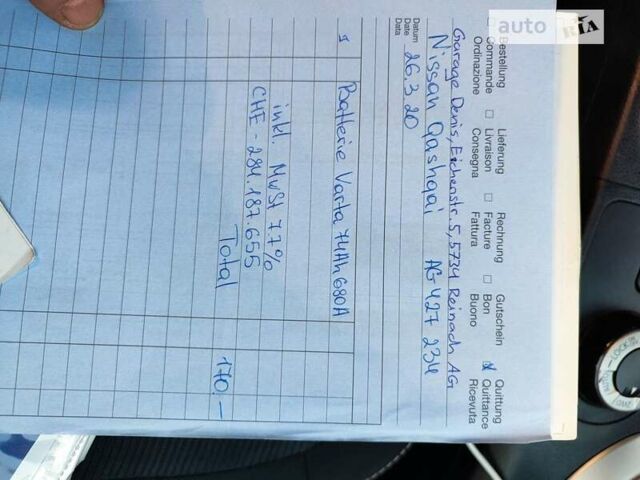 auto RIA
Bestellung Lieferung Rechnung Gutschein Quittung
Commande Livraison Facture Bon Quittance
Ordinazione Consegna Fattura Buono Ricevuta
Garage Denis, Eichenstr. 5, 5734 Reinach AG
Nissan Qashqai AG 427 234
Datum
Date
Data
26.3.20
1 Batterie Varta 74Ah 680A
inkl. MwSt 7.7%
CHE - 284.187.655
Total 170.-
LOCK